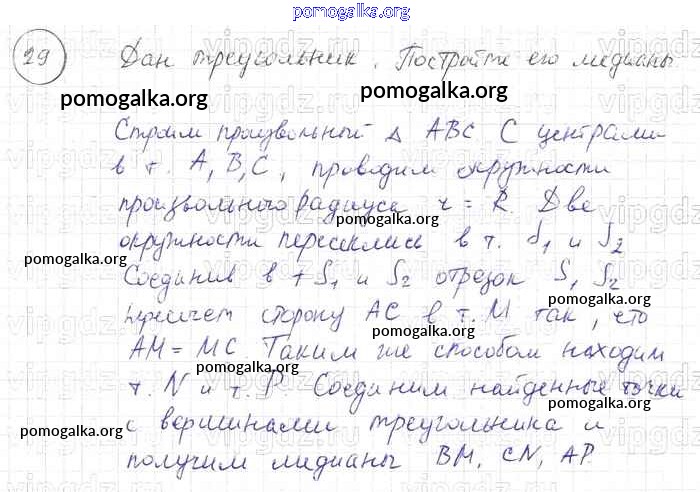 pomogalka.org
29 Дан треугольник. Постройте его медианы
pomogalka.org pomogalka.org
Строим произвольный Δ ABC С центрами
в т. A, B, C, проводим окружности
произвольного радиуса r = R. Две
pomogalka.org
окружности пересеклись в т. S1 и S2
pomogalka.org
Соединив в т S1 и S2 отрезок S1 S2
pomogalka.org
пересечет сторону AC в т. M так, что
pomogalka.org
AM = MC. Таким же способом находим
pomogalka.org
т. N и т. P. Соединим найденные точки
pomogalka.org
с вершинами треугольника и
pomogalka.org
получим медианы BM, CN, AP.